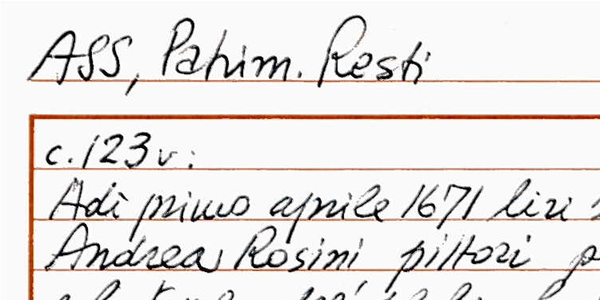 ASS, Patrim. Resti
c. 123 v:
Adì primo aprile 1671 lire
Andrea Rosini pittori